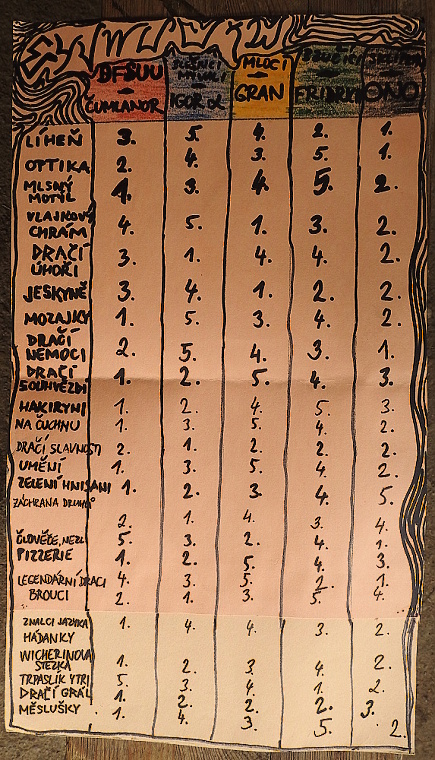 BFŠUU MLOCI
ČUMLANOR IGOR GRAN ONO
LÍHEŇ 3. 5. 4. 2. 1.
OPTIKA 2. 4. 3. 5. 1.
MLSNÝ
MOTÝL 1. 3. 4. 5. 2.
VLAJKOVÝ
CHRÁM 4. 5. 1. 3. 2.
DRAČÍ
ÚHOŘI 3. 1. 4. 4. 2.
JESKYNĚ 3. 4. 1. 2. 2.
MOZAJKY 1. 5. 3. 4. 2.
DRAČÍ
NEMOCI 2. 5. 4. 3. 1.
DRAČÍ
SOUHVĚZDÍ 1. 2. 5. 4. 3.
HAKIRYNI 1. 2. 4. 5. 3.
NA ČUCHNU 1. 3. 5. 4. 2.
DRAČÍ SLAVNOSTI 2. 1. 2. 2. 2.
UMĚNÍ 1. 3. 5. 4. 2.
ZELENÍ HNISANI 1. 2. 3. 4. 5.
ZÁCHRANA DRUHŮ
2. 1. 4. 3. 4.
ČLOVĚČE, NEZL 5. 3. 2. 4. 1.
PIZZERIE 1. 2. 5. 4. 3.
LEGENDÁRNÍ DRACI 4. 3. 5. 2. 1.
BROUCI 2. 1. 3. 5. 4.
ZNALCI JAZYKA 1. 4. 4. 3. 2.
HÁDANKY
WICHERINOVA
STEZKA 1. 2. 3 4. 2.
TRPASLÍK VTRJ 5. 3. 4. 1. 2.
DRAČÍ GRÁL 1. 2. 2. 2. 3.
MĚSLUŠKY 1. 4. 3. 5. 2.